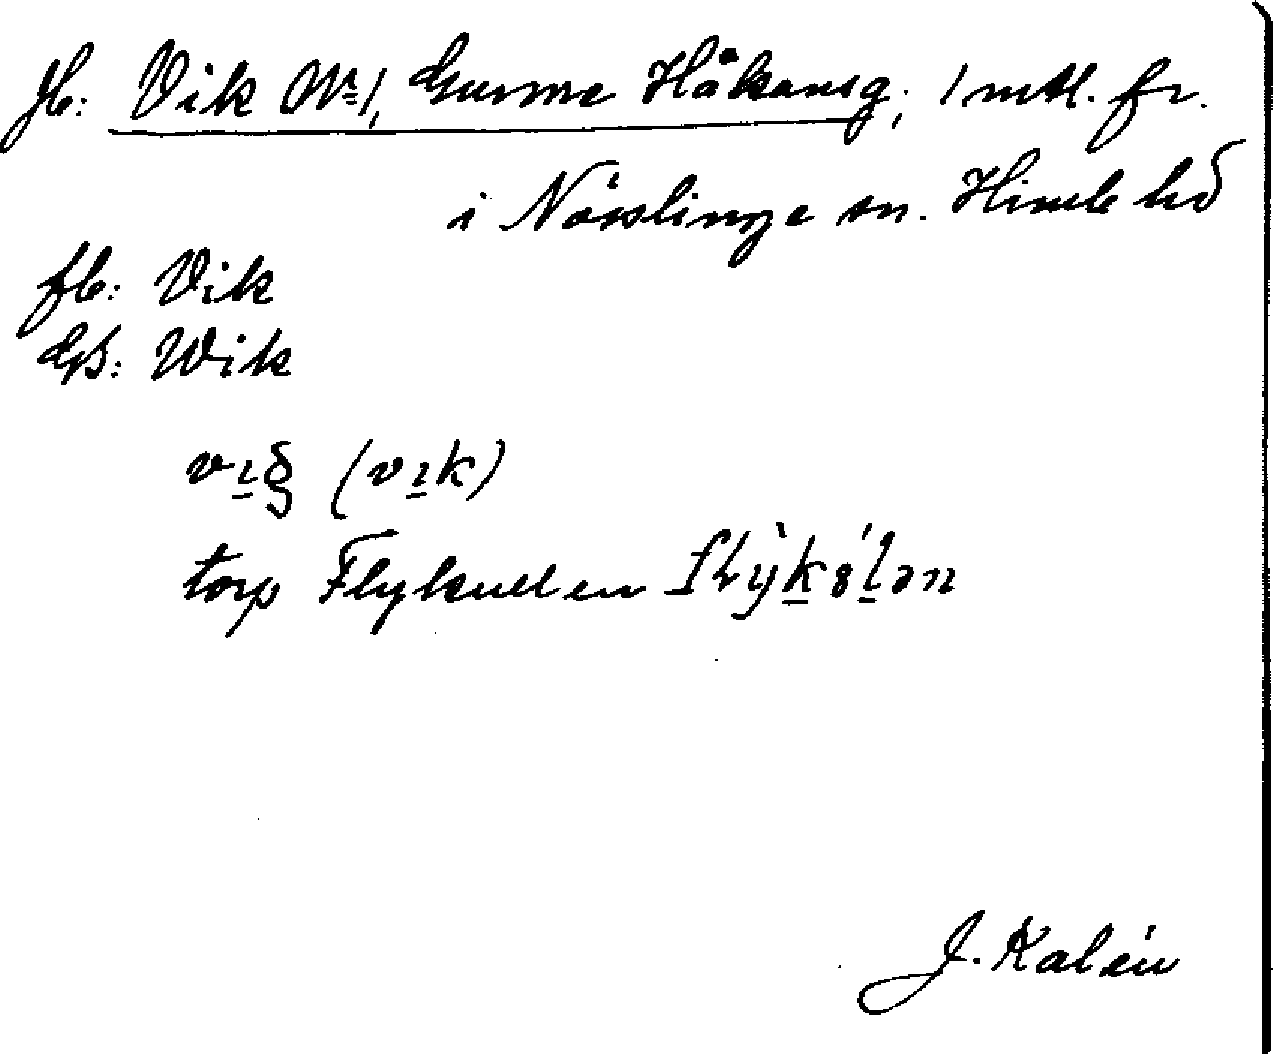 Jb: Vik Nr 1, Gunne Håkansg; 1 mtl. fr.
i Nösslinge sn. Himle hd
fb: Vik
GS: Wik
(vık)
torp Flykullen
J. Kalén